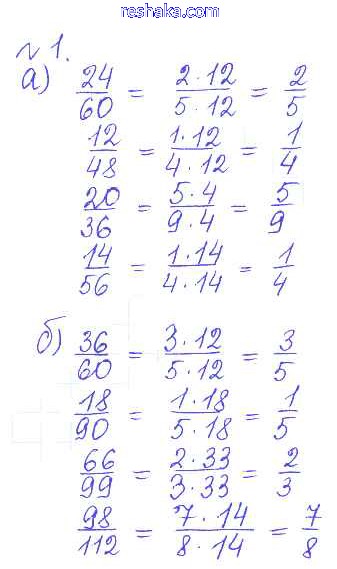 reshaka.com
№1.
а) 24/60 = 2·12/5·12 = 2/5
12/48 = 1·12/4·12 = 1/4
20/36 = 5·4/9·4 = 5/9
14/56 = 1·14/4·14 = 1/4
б) 36/60 = 3·12/5·12 = 3/5
18/90 = 1·18/5·18 = 1/5
66/99 = 2·33/3·33 = 2/3
98/112 = 7·14/8·14 = 7/8